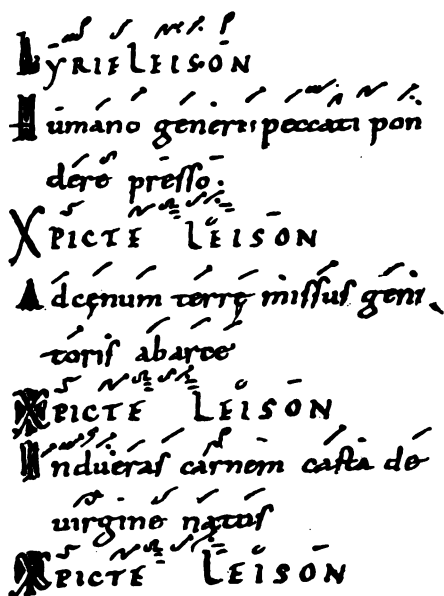 KYRIELEISON
Humano generi peccati pon
dere presso.
XPICTE LEISON
Ad cęnum terrę missus geni
toris abarce
XPICTE LEISON
Indueras carnem casta de
uirgine natus
XPICTE LEISON